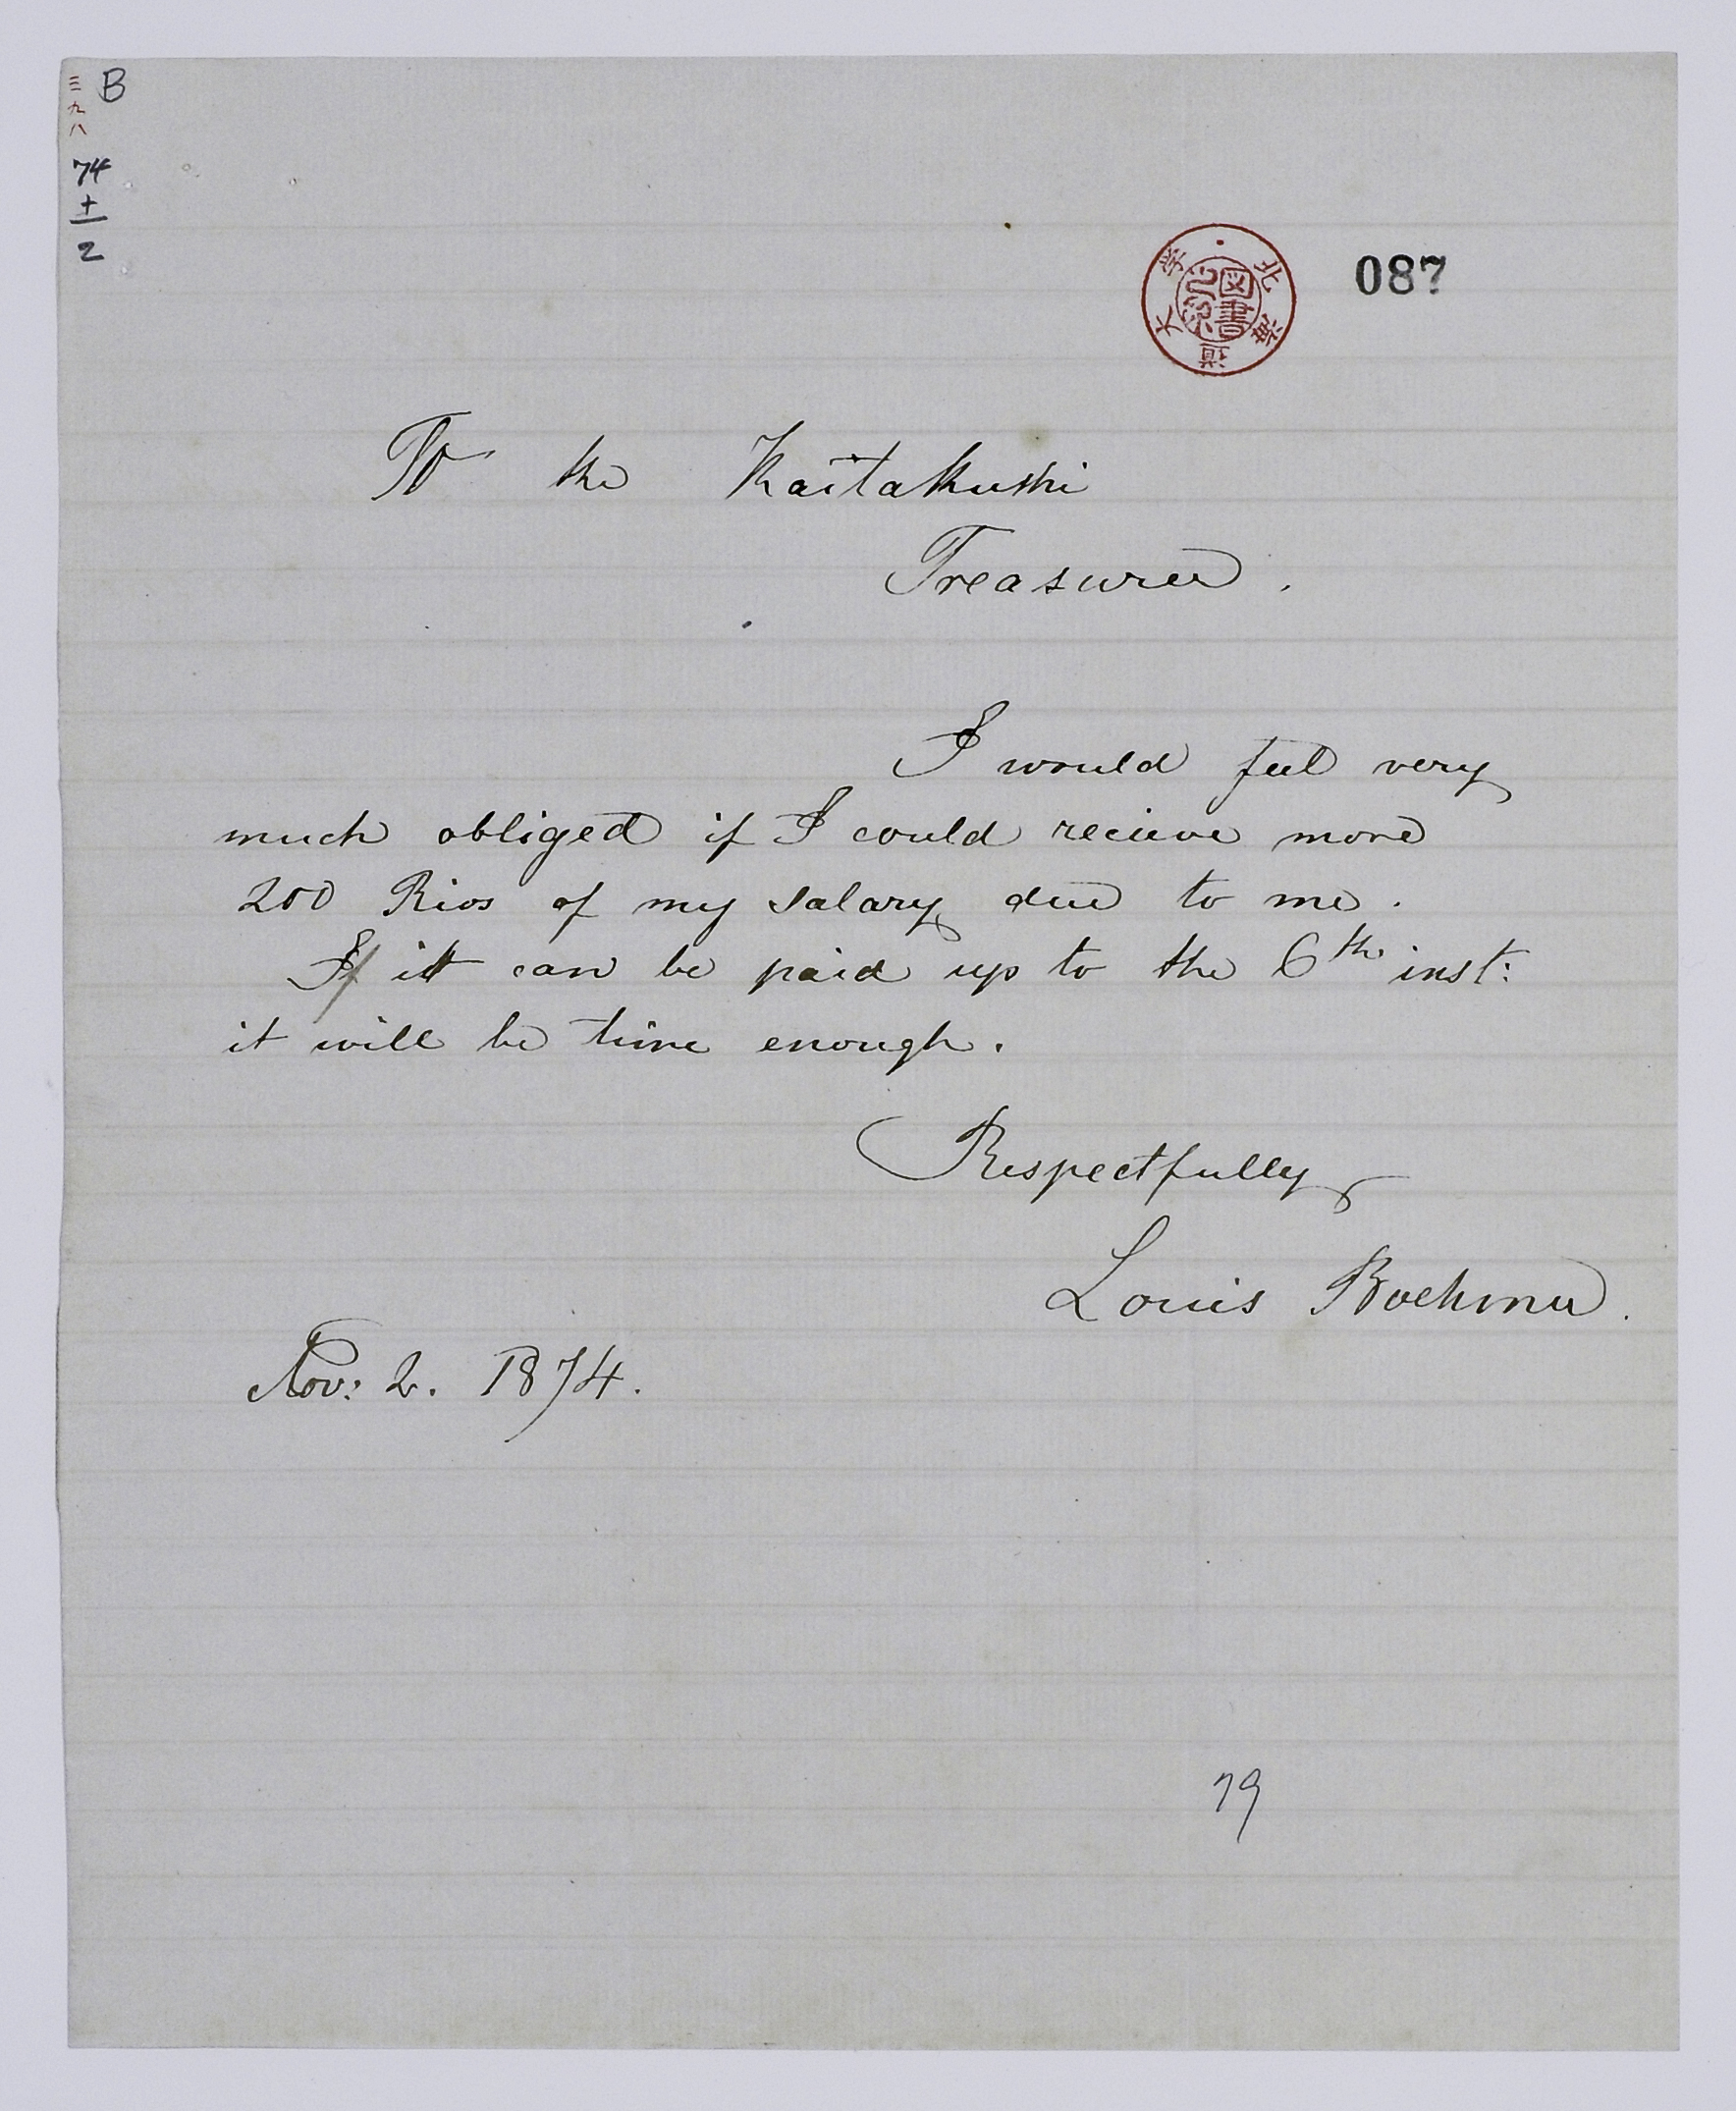 三九八
B
74
+
2
北海道大学
図書
087
To the Kaitakushi
Treasurer.
I would feel very
much obliged if I could recieve more
200 Rios of my salary due to me.
If it can be paid up to the 6th inst:
it will be time enough.
Respectfully
Louis Boehmer.
Nov: 2. 1874.
79